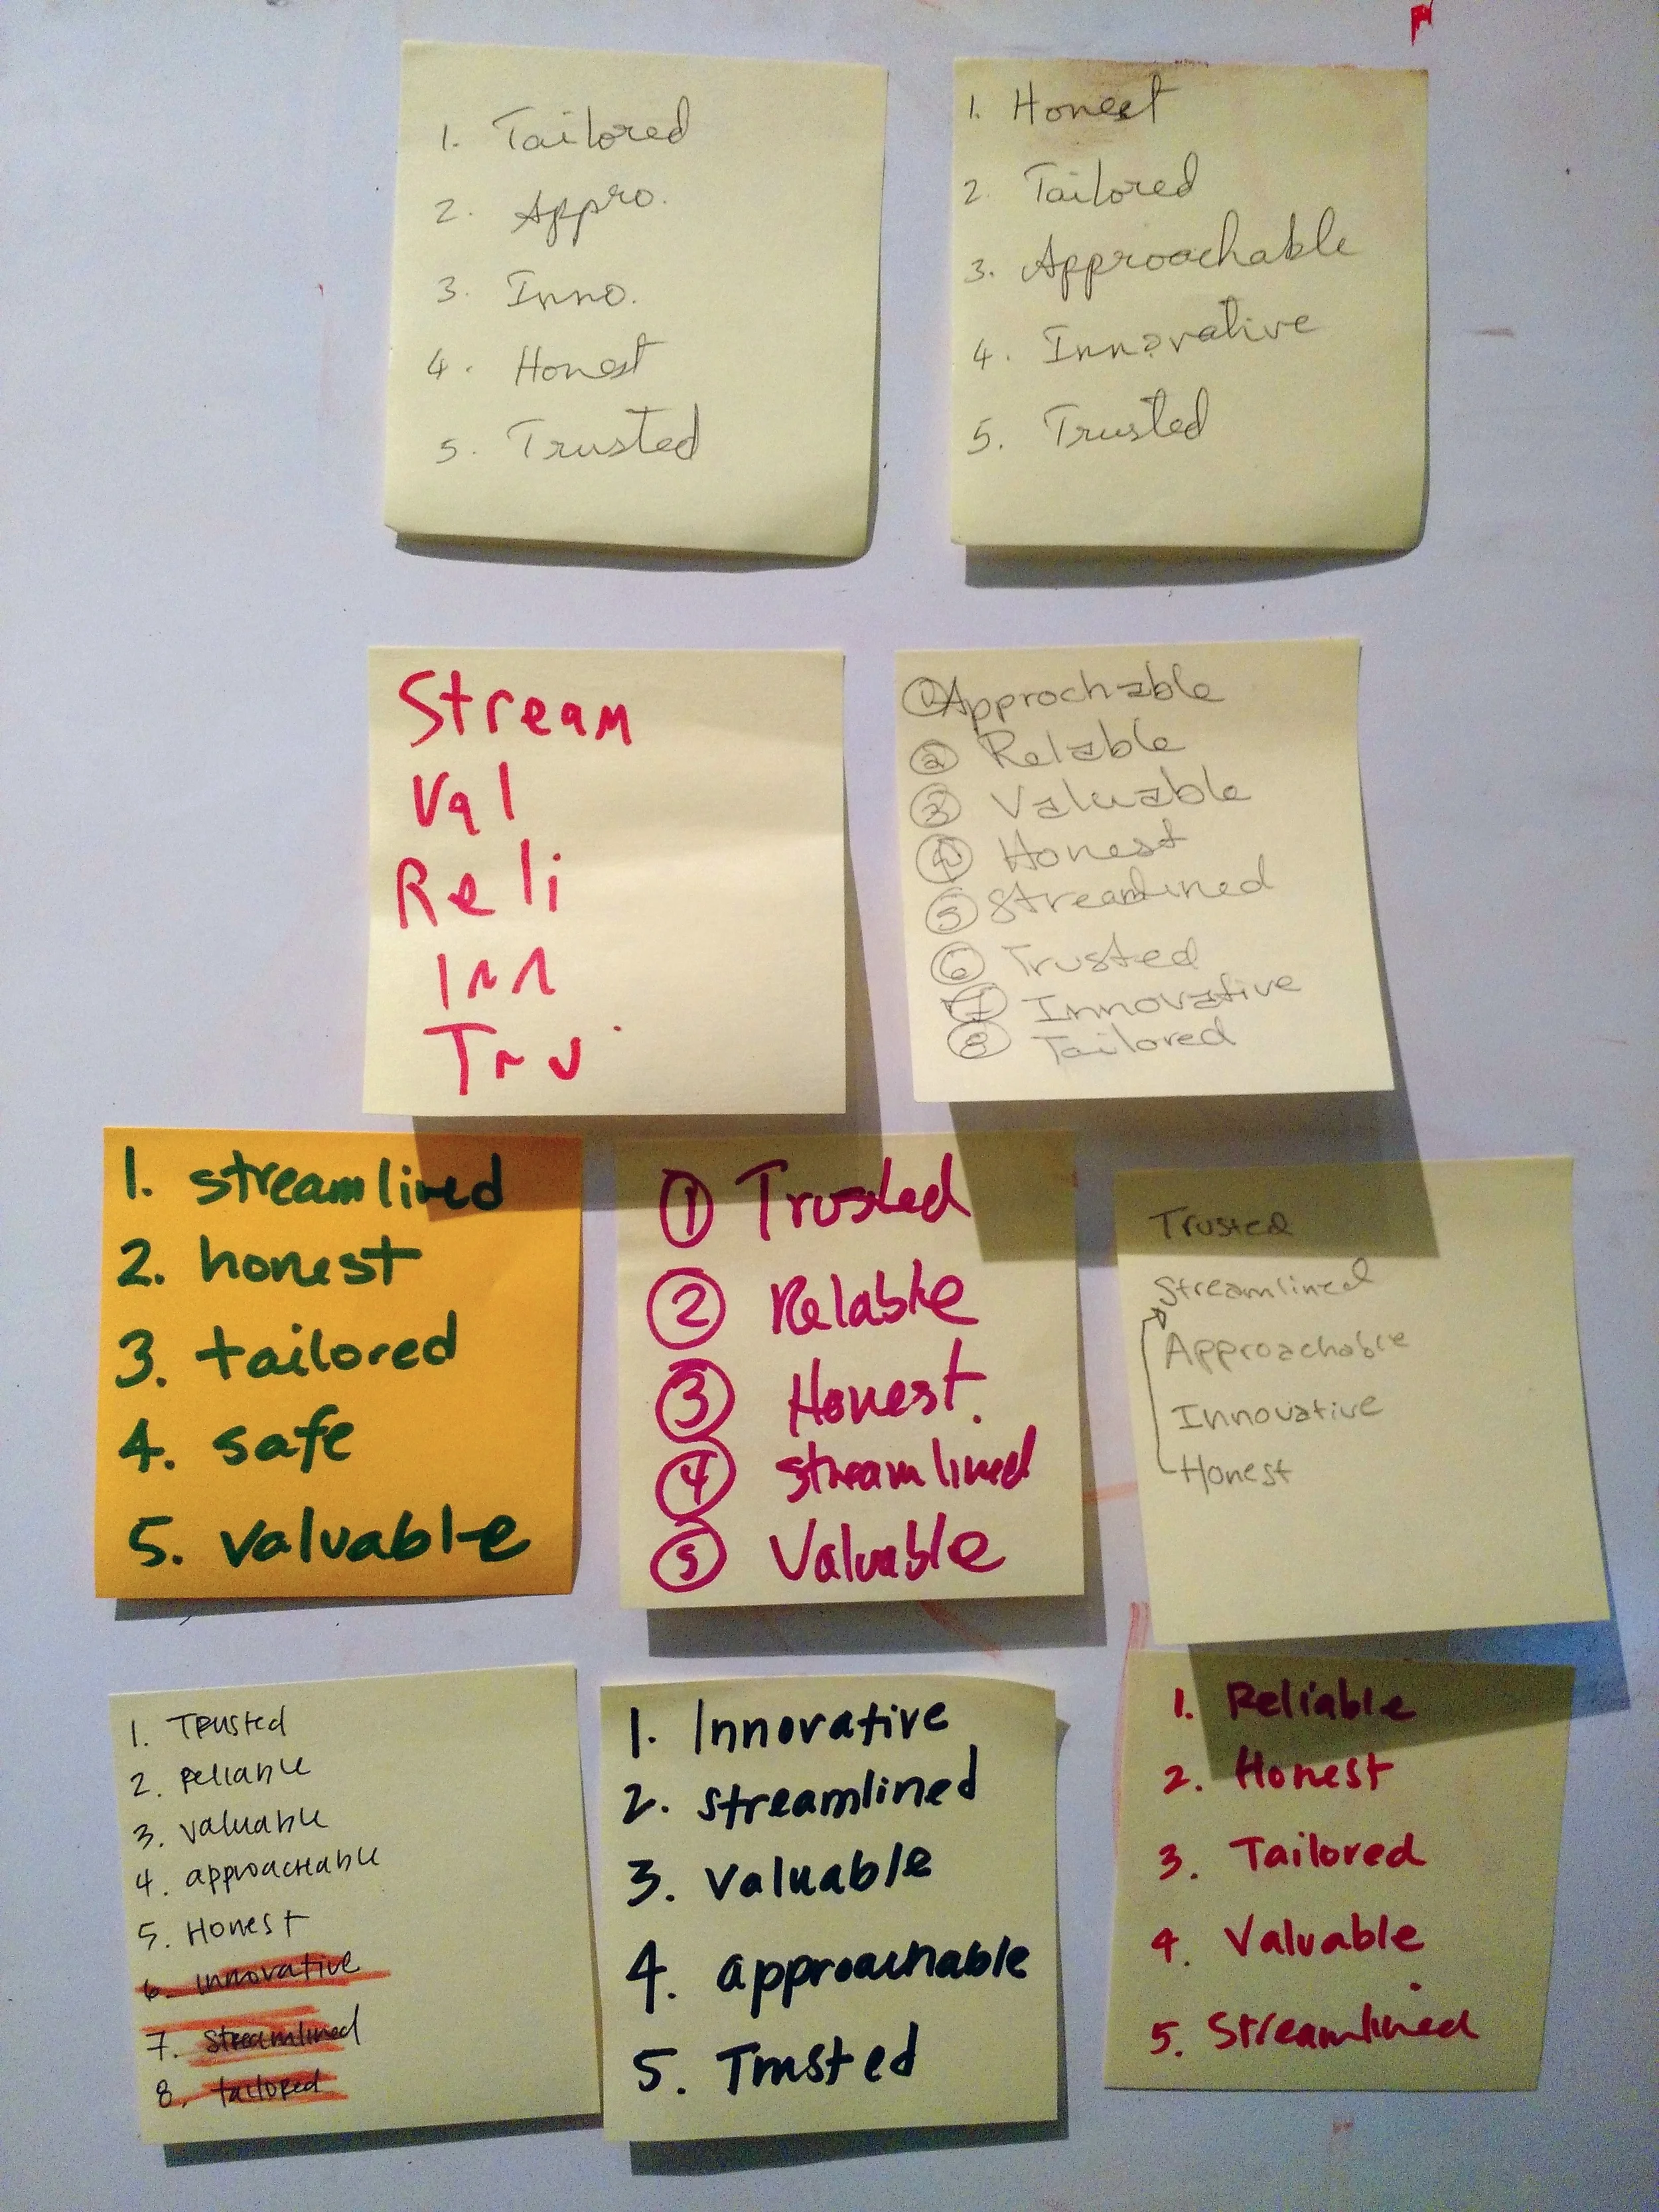 1. Tailored
2. Appro.
3. Inno.
4. Honest
5. Trusted
1. Honest
2. Tailored
3. Approachable
4. Innovative
5. Trusted
Stream
Val
Reli
Inn
Tru
① Approchable
② Relable
③ Valuable
④ Honest
⑤ Streamlined
⑥ Trusted
⑦ Innovative
⑧ Tailored
1. streamlined
2. honest
3. tailored
4. safe
5. valuable
① Trusted
② Relable
③ Honest.
④ streamlined
⑤ Valuable
Trusted
Streamlined
Approachable
Innovative
Honest
1. Trusted
2. reliable
3. valuable
4. approachable
5. Honest
6. innovative
7. streamlined
8. tailored
1. Innovative
2. streamlined
3. valuable
4. approachable
5. Trusted
1. Reliable
2. Honest
3. Tailored
4. Valuable
5. Streamlined